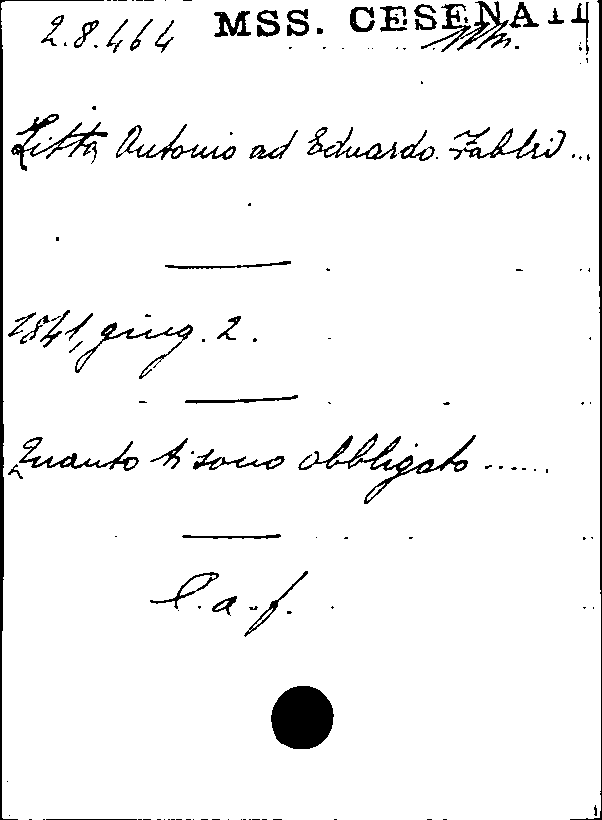 2.8.464 MSS. CESENATI
Litta Antonio ad Eduardo Fabbri...
1841, giug. 2.
Quanto ti sono obbligato ......
l.a.f.